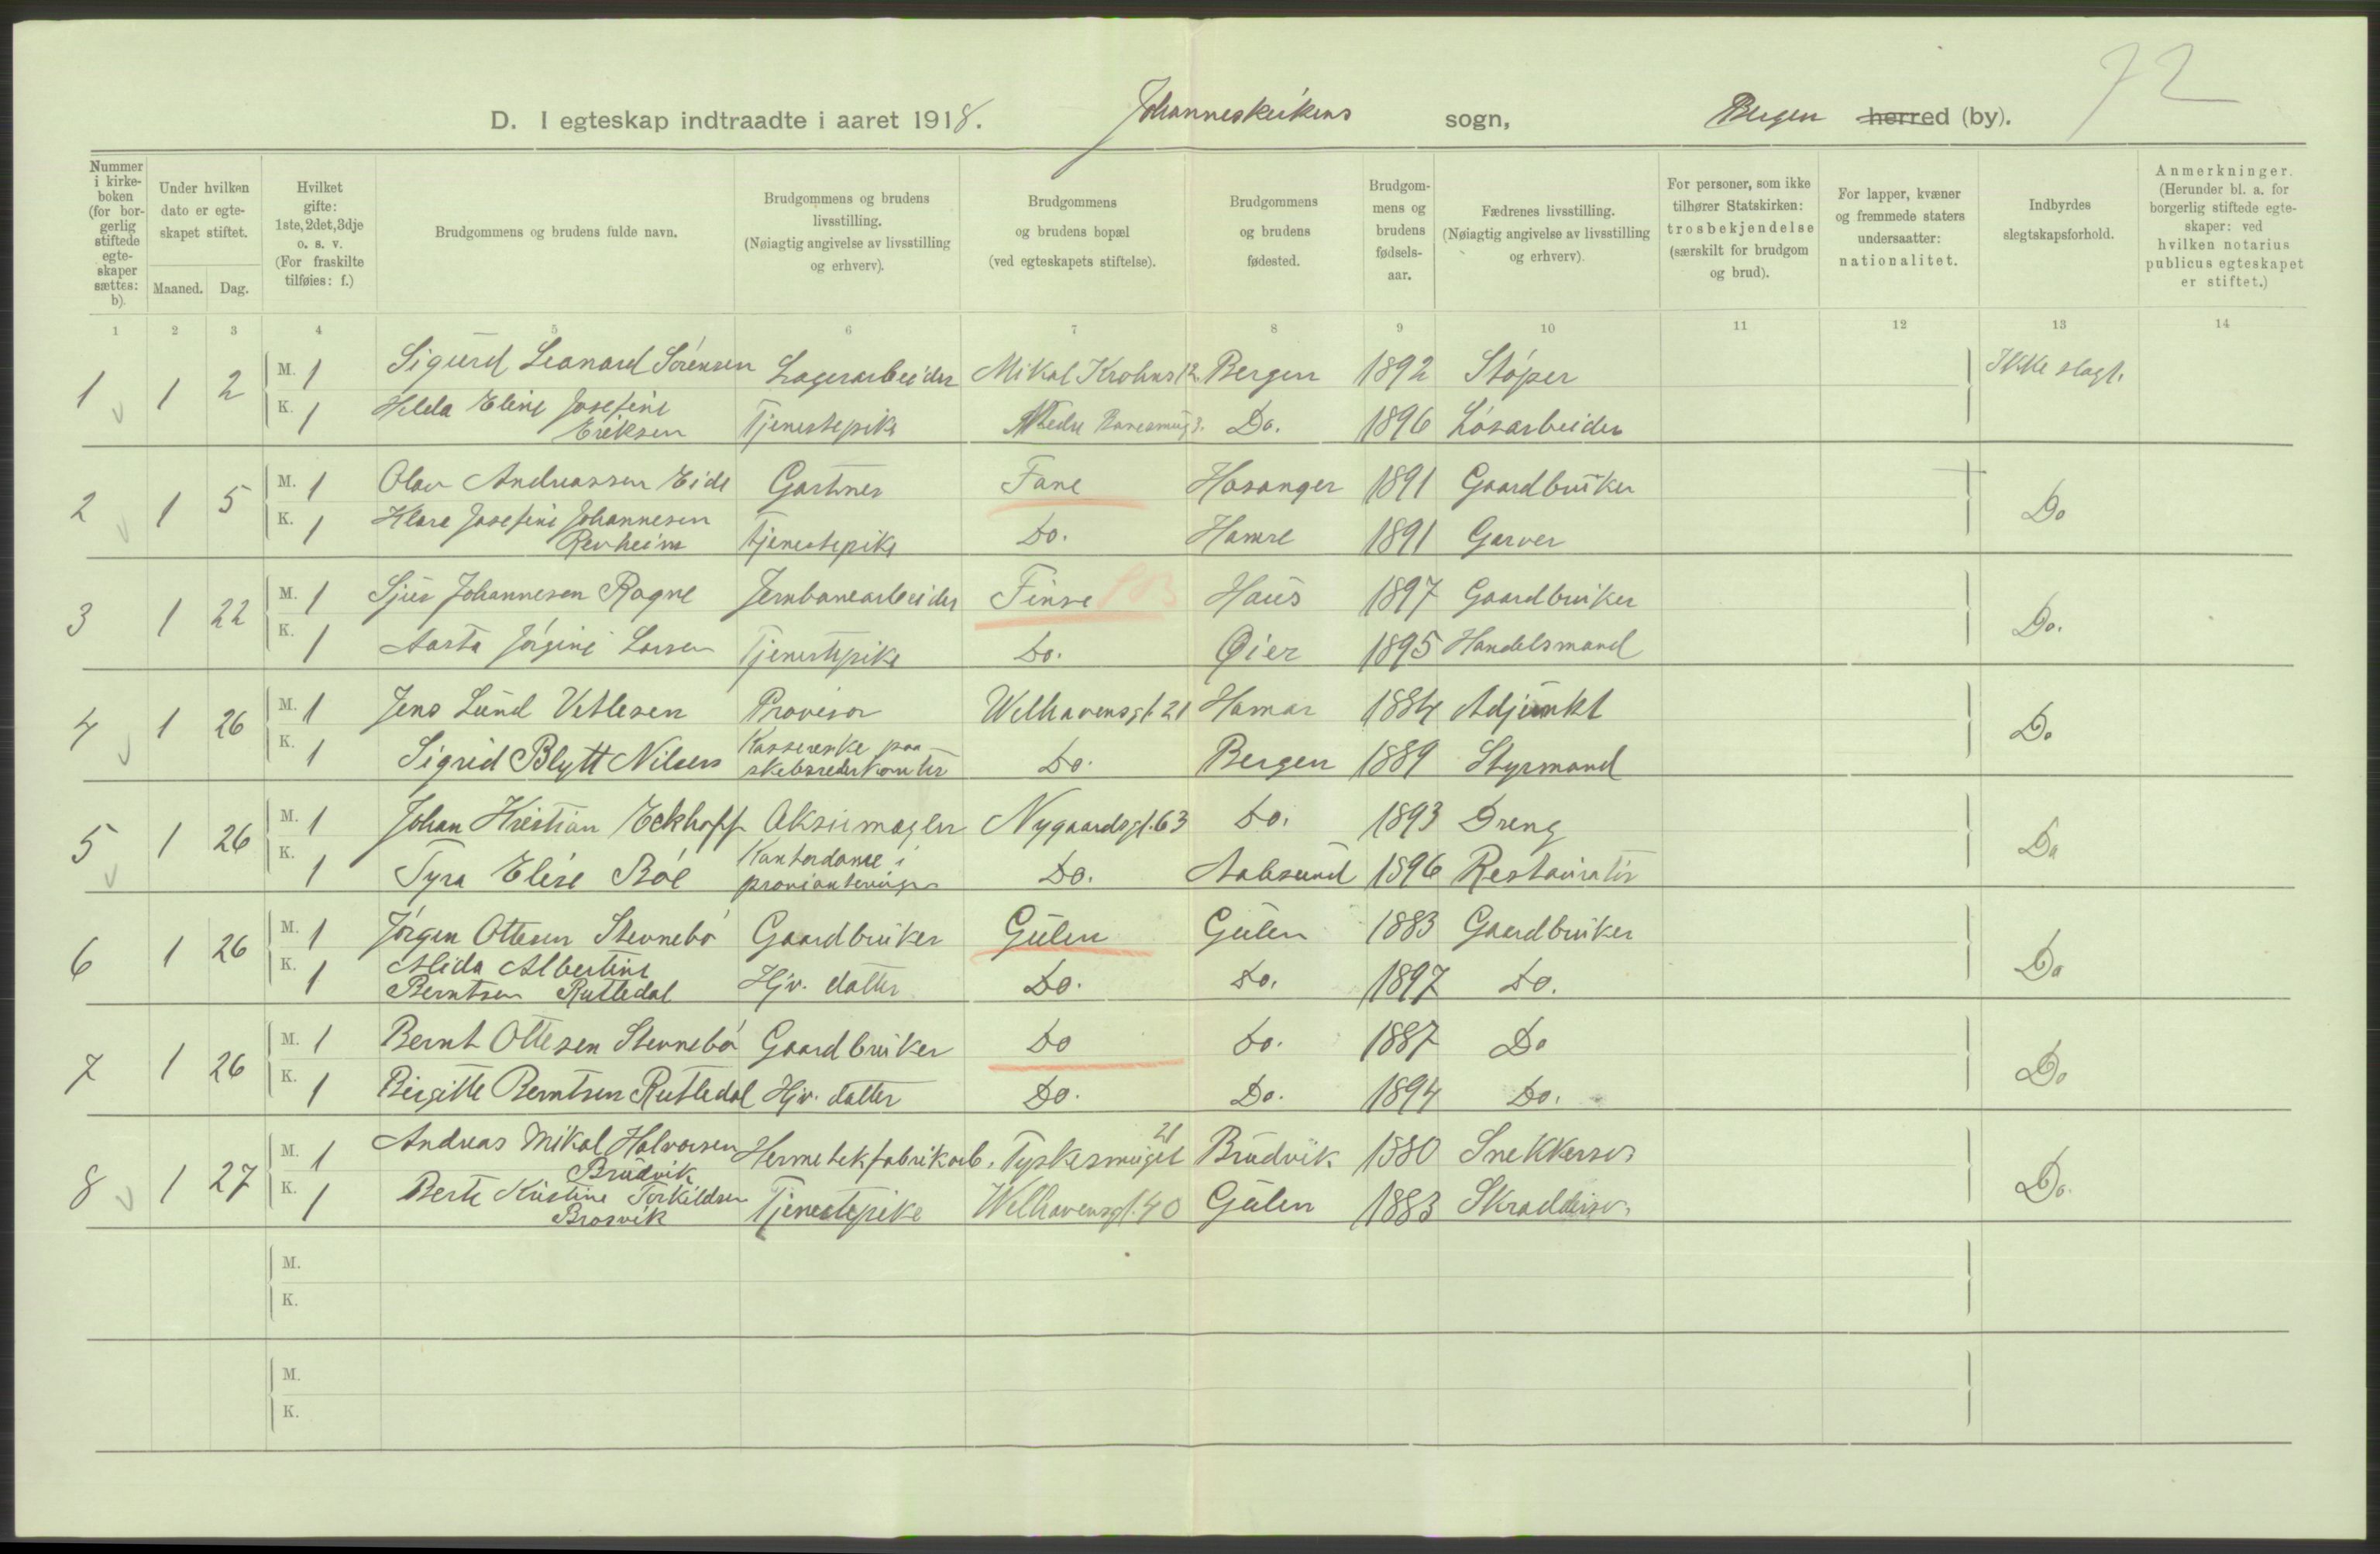 72
D. I egteskap indtraadte i aaret 1918. Johanneskirkens sogn, Bergen herred (by).
Nummer i kirkeboken (for borgerlig stiftede egteskaper sættes: b).
Under hvilken dato er egteskapet stiftet.
Maaned. Dag.
Hvilket gifte: 1ste, 2det, 3dje o. s. v. (For fraskilte tilføies: f.)
Brudgommens og brudens fulde navn.
Brudgommens og brudens livsstilling. (Nøiagtig angivelse av livsstilling og erhverv).
Brudgommens og brudens bopæl (ved egteskapets stiftelse).
Brudgommens og brudens fødested.
Brudgommens og brudens fødselsaar.
Fædrenes livsstilling. (Nøiagtig angivelse av livsstilling og erhverv).
For personer, som ikke tilhører Statskirken: trosbekjendelse (særskilt for brudgom og brud).
For lapper, kvæner og fremmede staters undersaatter: nationalitet.
Indbyrdes slegtskapsforhold.
Anmerkninger. (Herunder bl. a. for borgerlig stiftede egteskaper: ved hvilken notarius publicus egteskapet er stiftet.)
1 2 3 4 5 6 7 8 9 10 11 12 13 14
1 1 2 M. 1 Sigurd Leonard Sörensen Lagerarbeider Mikal Krohns 12. Bergen 1892 Stóper Ikke slagt.
K. 1 Hilda Eline Josefine Eriksen Tjenestepike Nedre 3. Do. 1896 Lósarbeider
2 1 5 M. 1 Olav Andreassen Eide Gartner Fane Hosanger 1891 Gaardbruker Do
K. 1 Klara Josefine Johannesen Revheim Tjenestepike Do. Hamre 1891 Garver
3 1 22 M. 1 Sjur Johannesen Rogne Jernbanearbeider Finse Haus 1897 Gaardbruker Do.
K. 1 Aasta Jórgine Larsen Tjenestepike Do. Øier 1895 Handelsmand
4 1 26 M. 1 Jens Lund Vetlesen Provisor Welhavensgt. 21 Hamar 1884 Adjunkt Do
K. 1 Sigrid Blytt Nilsen Kassererske paa skibsrederkontor Do. Bergen 1889 Styrmand
5 1 26 M. 1 Johan Kristian Eckhoff Aksiemægler Nygaardsgt. 63 Do. 1893 Dreng Do
K. 1 Tyra Elise Bóe Kontordame i Do. Aalesund 1896 Restauratör
6 1 26 M. 1 Jórgen Ottesen Stevnebó Gaardbruker Gulen Gulen 1883 Gaardbruker Do
K. 1 Alida Albertine Berntsen Rutledal Hjv. datter Do. Do. 1897 Do.
7 1 26 M. 1 Bernt Ottesen Stevnebó Gaardbruker Do Do. 1887 Do Do
K. 1 Birgitte Berntsen Rutledal Hjv. datter Do. Do. 1894 Do.
8 1 27 M. 1 Andreas Mikal Halvorsen Brudvik Hermetekfabrikarb. Tyskesmuget 21 Brudvik 1880 Snekkersv. Do.
K. 1 Berte Kristine Torkildsen Brosvik Tjenestepike Welhavensgt. 40 Gulen 1883 Skraddersv.
M.
K.
M.
K.